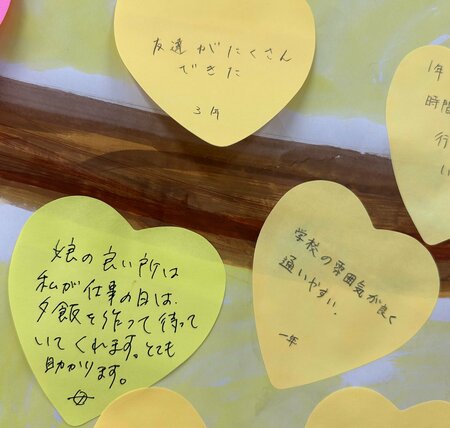 友達がたくさん
できた
3年
1年
時間
行
い
娘の良い所は
私が仕事の日は、
夕飯を作って待って
いてくれます。とても
助かります。
学校の雰囲気が良く
通いやすい。
一年